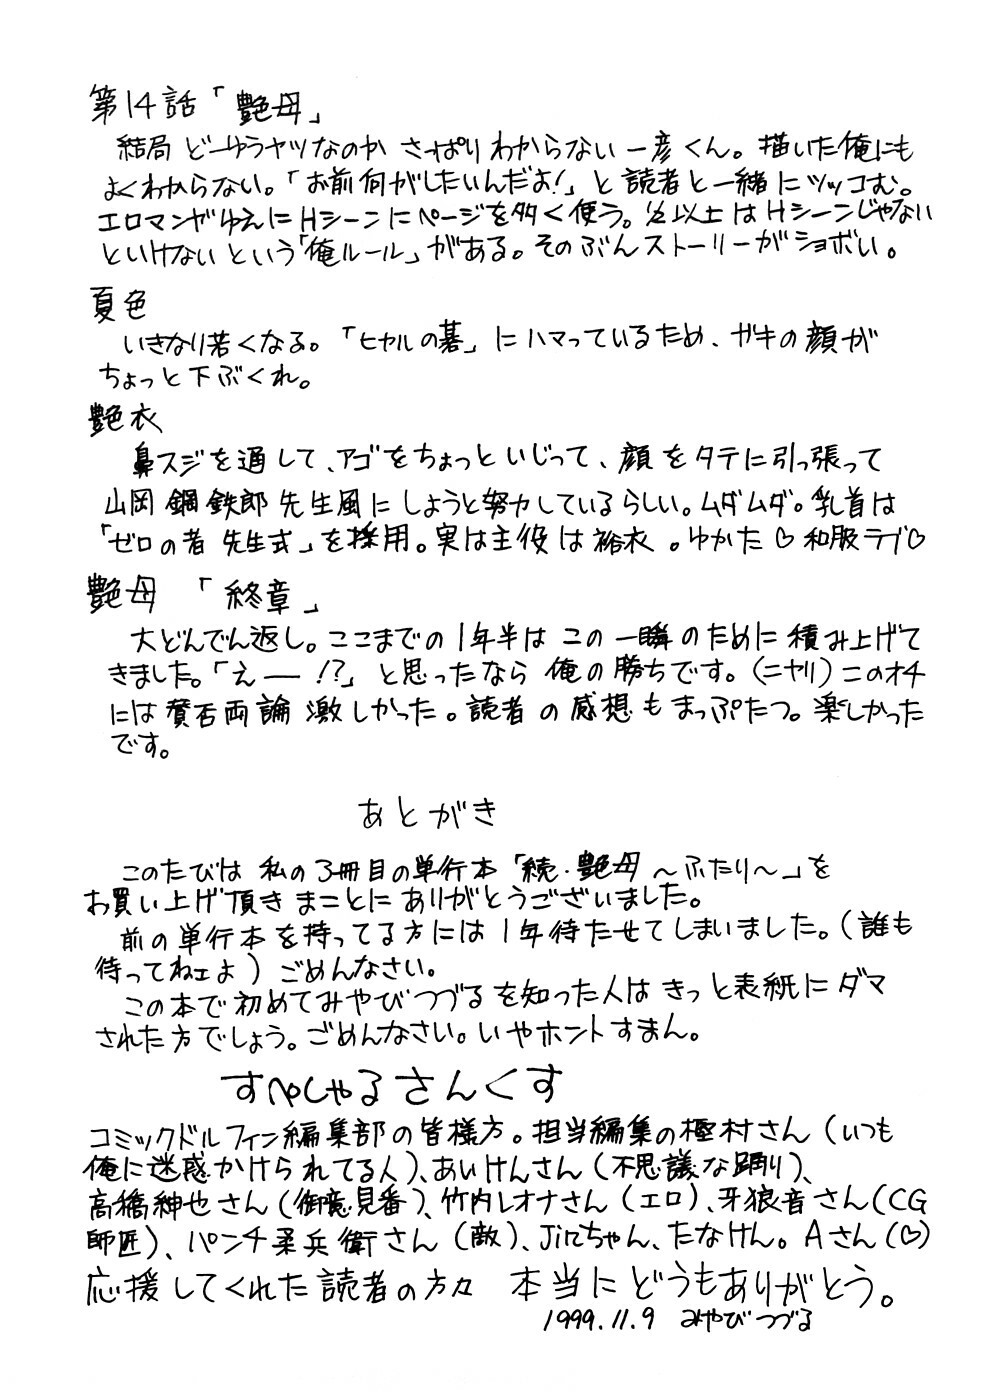 第14話「艶母」
結局どーゆうヤツなのかさっぱりわからない一彦くん。描いた俺にも
よくわからない。「お前何がしたいんだよ!」と読者と一緒にツッコむ。
エロマンガゆえにHシーンにページを多く使う。½以上はHシーンじゃない
といけないという「俺ルール」がある。そのぶんストーリーがショボい。
夏色
いきなり若くなる。「ヒカルの碁」にハマっているため、ガキの顔が
ちょっと下ぶくれ。
艶衣
鼻スジを通して、アゴをちょっといじって、顔をタテに引っ張って
山岡鋼鉄郎先生風にしようと努力しているらしい。ムダムダ。乳首は
「ゼロの者先生式」を採用。実は主役は裕衣。ゆかた♡和服ラブ♡
艶母 「終章」
大どんでん返し。ここまでの1年半はこの一瞬のために積み上げて
きました。「えー!?」と思ったなら俺の勝ちです。(ニヤリ)このオチ
には賛否両論激しかった。読者の感想もまっぷたつ。楽しかった
です。
あとがき
このたびは私の3冊目の単行本「続・艶母～ふたり～」を
お買い上げ頂きまことにありがとうございました。
前の単行本を持ってる方には1年待たせてしまいました。(誰も
待ってねェよ)ごめんなさい。
この本で初めてみやびつづるを知った人はきっと表紙にダマ
された方でしょう。ごめんなさい。いやホントすまん。
すぺしゃるさんくす
コミックドルフィン編集部の皆様方。担当編集の極村さん(いつも
俺に迷惑かけられてる人)、あいけんさん(不思議な踊り)、
高橋紳也さん(御意見番)、竹内レオナさん(エロ)、牙狼音さん(CG
師匠)、パンチ柔兵衛さん(敵)、Jinちゃん、たなけん。Aさん(♡)
応援してくれた読者の方々 本当にどうもありがとう。
1999.11.9 みやびつづる